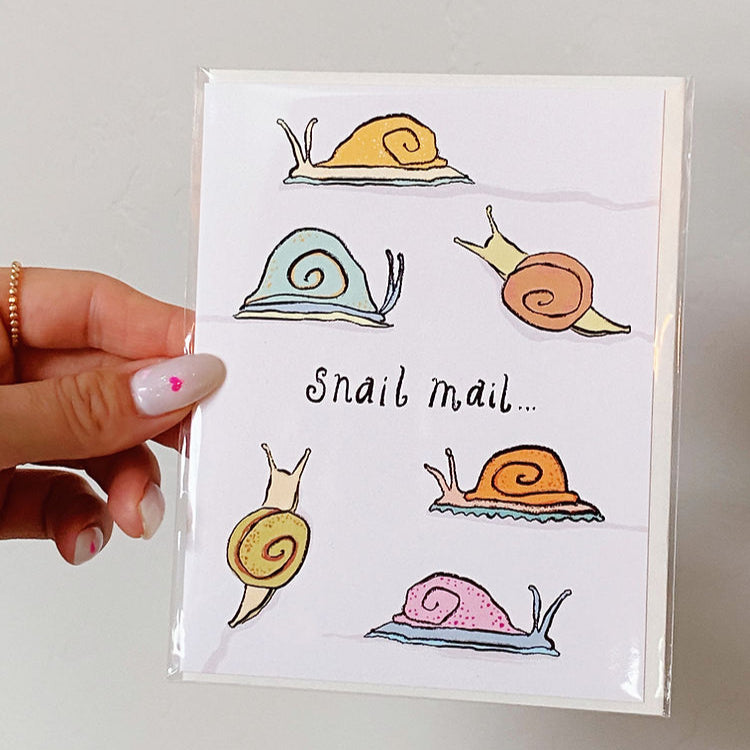 snail mail...